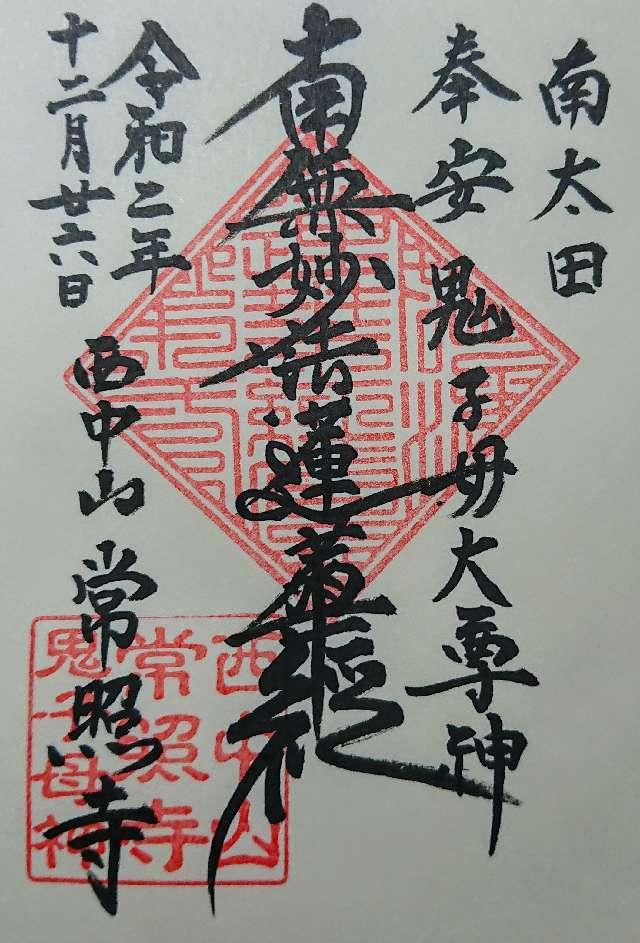 南太田
奉安 鬼子母大尊神
南無妙法蓮華経
令和二年
十二月廿六日
西中山 常照寺
西中山
常照寺
鬼子母神